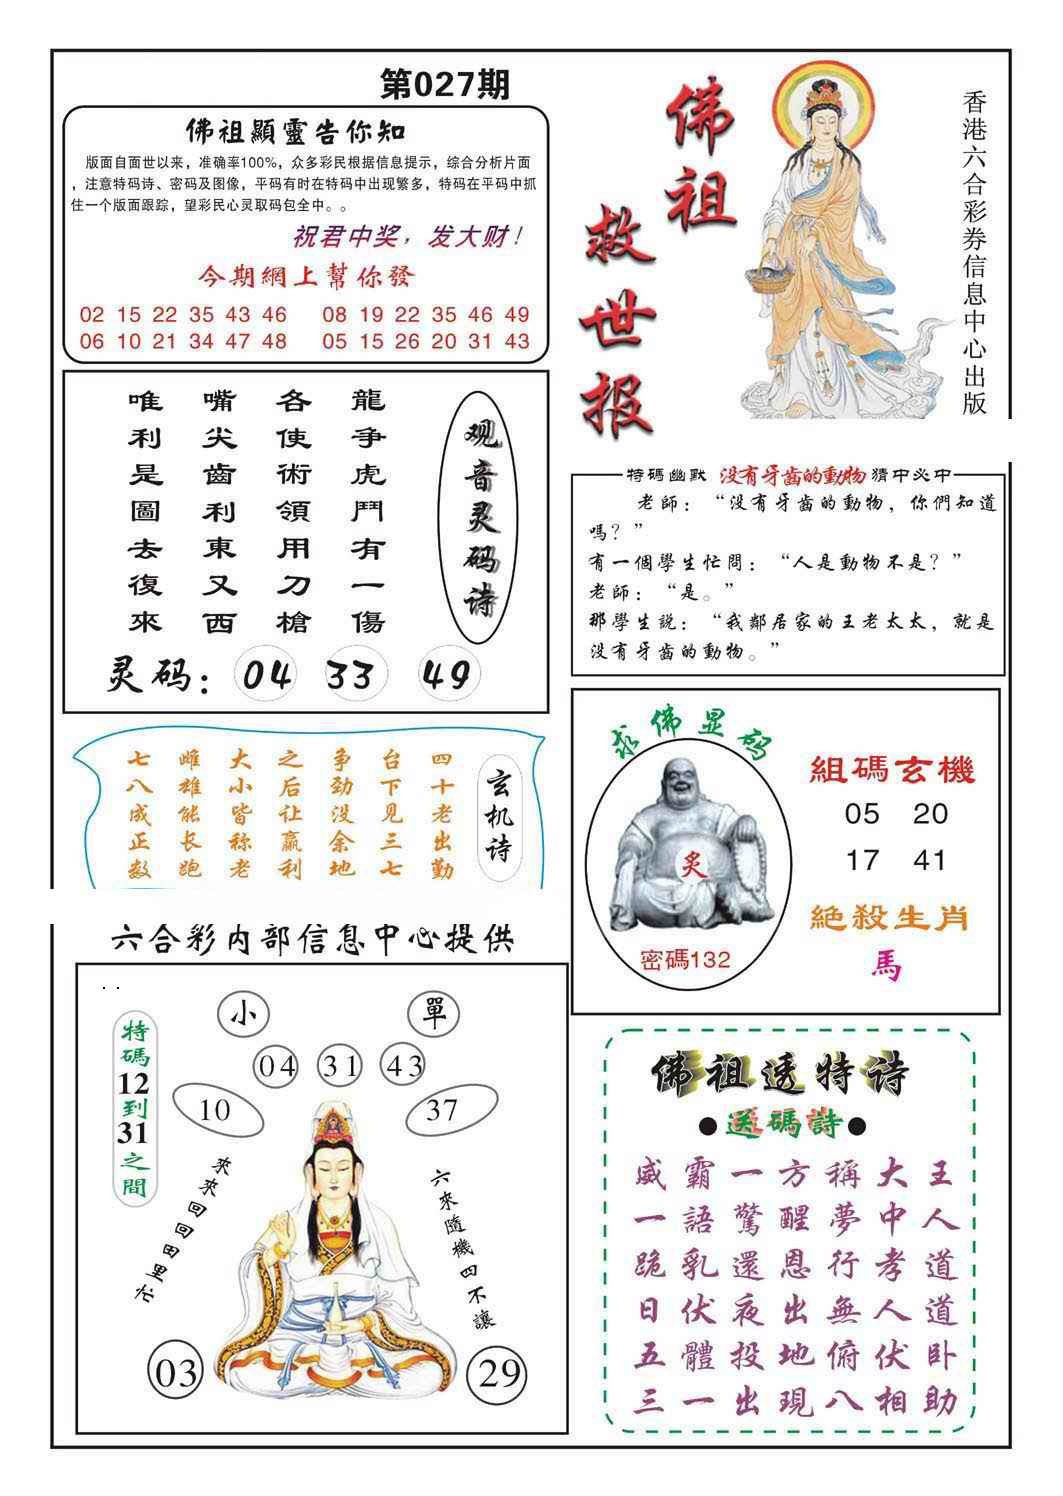 第027期
佛祖顯靈告你知
版面自面世以来，准确率100%，众多彩民根据信息提示，综合分析片面
，注意特码诗、密码及图像，平码有时在特码中出现繁多，特码在平码中抓
住一个版面跟踪，望彩民心灵取码包全中。。
祝君中奖，发大财！
今期網上幫你發
02 15 22 35 43 46 08 19 22 35 46 49
06 10 21 34 47 48 05 15 26 20 31 43
佛祖
救世报
香港六合彩券信息中心出版
观音灵码诗
龍争虎鬥有一傷
各使術領用刀槍
嘴尖齒利東又西
唯利是圖去復來
灵码：04 33 49
特碼幽默 没有牙齒的動物 猜中必中
老師：“没有牙齒的動物，你們知道
嗎？”
有一個學生忙問：“人是動物不是？”
老師：“是。”
那學生説：“我鄰居家的王老太太，就是
没有牙齒的動物。”
玄机诗
四十老出勤
台下见三七
争劲没余地
之后让赢利
大小皆称老
雌雄能长跑
七八成正数
求佛显码
炙
密碼132
組碼玄機
05 20
17 41
絕殺生肖
馬
六合彩内部信息中心提供
特碼12到31之間
小
單
04 31 43
10
37
來來回回田里忙
六來隨機四不讓
03
29
佛祖透特诗
●送碼詩●
威霸一方稱大王
一語驚醒夢中人
跪乳還恩行孝道
日伏夜出無人道
五體投地俯伏卧
三一出現八相助